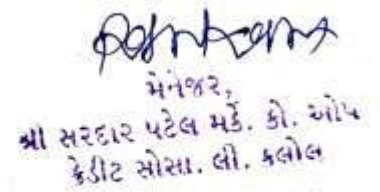 મેનેજર,
શ્રી સરદાર પટેલ મર્કે. કો. ઓપ
ક્રેડીટ સોસા. લી. કલોલ